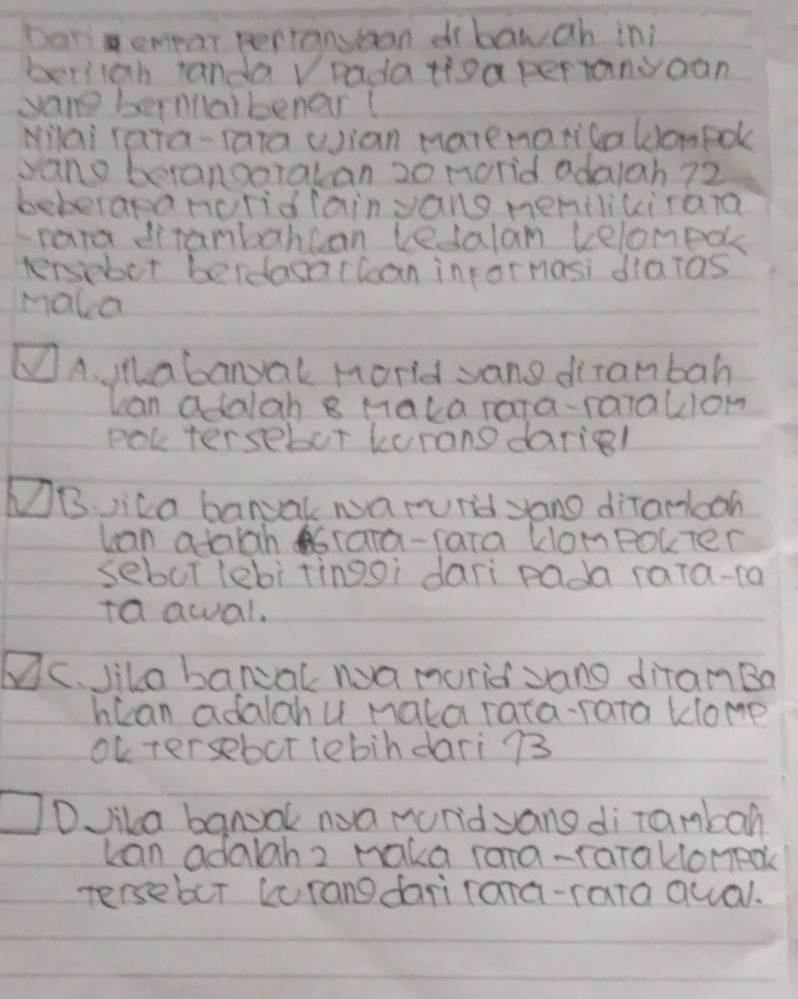 Dari empat pertanyaan di bawah ini
berilah tanda V pada tiga pertanyaan
yang bernilai benar!
Nilai rata-rata ujian matematika klompok
yang berangootakan 20 morid adalah 72
beberapa murid lain yang memiliki rara
-rata ditambahkan kedalam kelompok
tersebut berdasarkan informasi diatas
maka
☑ A. jika banyak morid yang ditambah
kan adalah 8 maka rata-rata klom
pok tersebut kurang dari 81
☑ B. Jika banyak nya murid yang ditambah
kan adalah 6 rata-rata klompok ter
sebut lebi tinggi dari pada rata-ra
ta awal.
☑ C. Jika banyak nya murid yang ditamba
hkan adalah 4 maka rata-rata klomp
ok tersebut lebih dari 73
☐ D. Jika banyak nya murid yang di tambah
kan adalah 2 maka rata-rata klompok
tersebut kurang dari rata-rata awal.